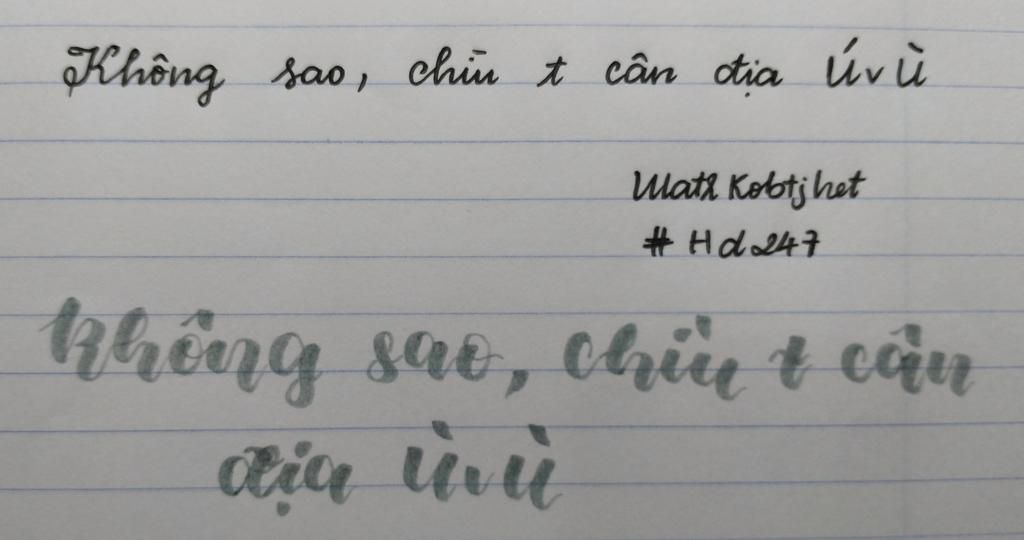 Không sao, chìu t cân địa Úvù
Matl Kobtjhet
# Hd247
Không sao, chìu t cân
địa ÙVÙ